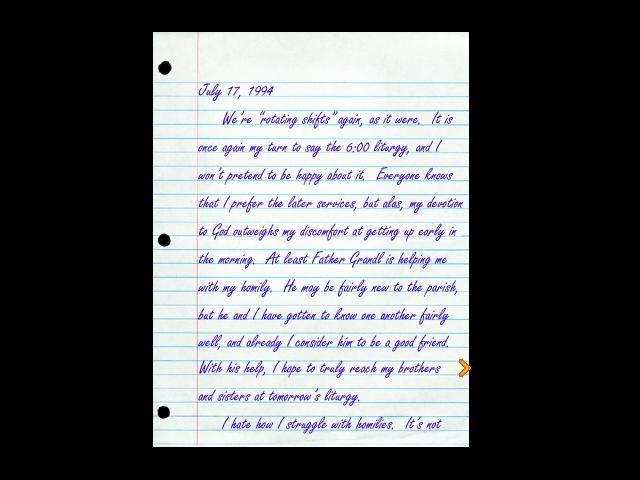 July 17, 1994
We're "rotating shifts" again, as it were. It is
once again my turn to say the 6:00 liturgy, and I
won't pretend to be happy about it. Everyone knows
that I prefer the later services, but alas, my devotion
to God outweighs my discomfort at getting up early in
the morning. At least Father Grandl is helping me
with my homily. He may be fairly new to the parish,
but he and I have gotten to know one another fairly
well, and already I consider him to be a good friend.
With his help, I hope to truly reach my brothers
and sisters at tomorrow's liturgy.
I hate how I struggle with homilies. It's not